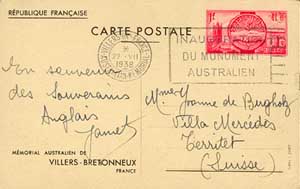 RÉPUBLIQUE FRANÇAISE
CARTE POSTALE
VILLERS-BRETONNEUX
27 - VII
1938
INAUGURATION
DU MONUMENT
AUSTRALIEN
En souvenir
des Souverains
Anglais
Janet
Mme Yvonne de Burgholz
Villa Mercédès
Territet
(Suisse)
MÉMORIAL AUSTRALIEN DE
VILLERS-BRETONNEUX
FRANCE